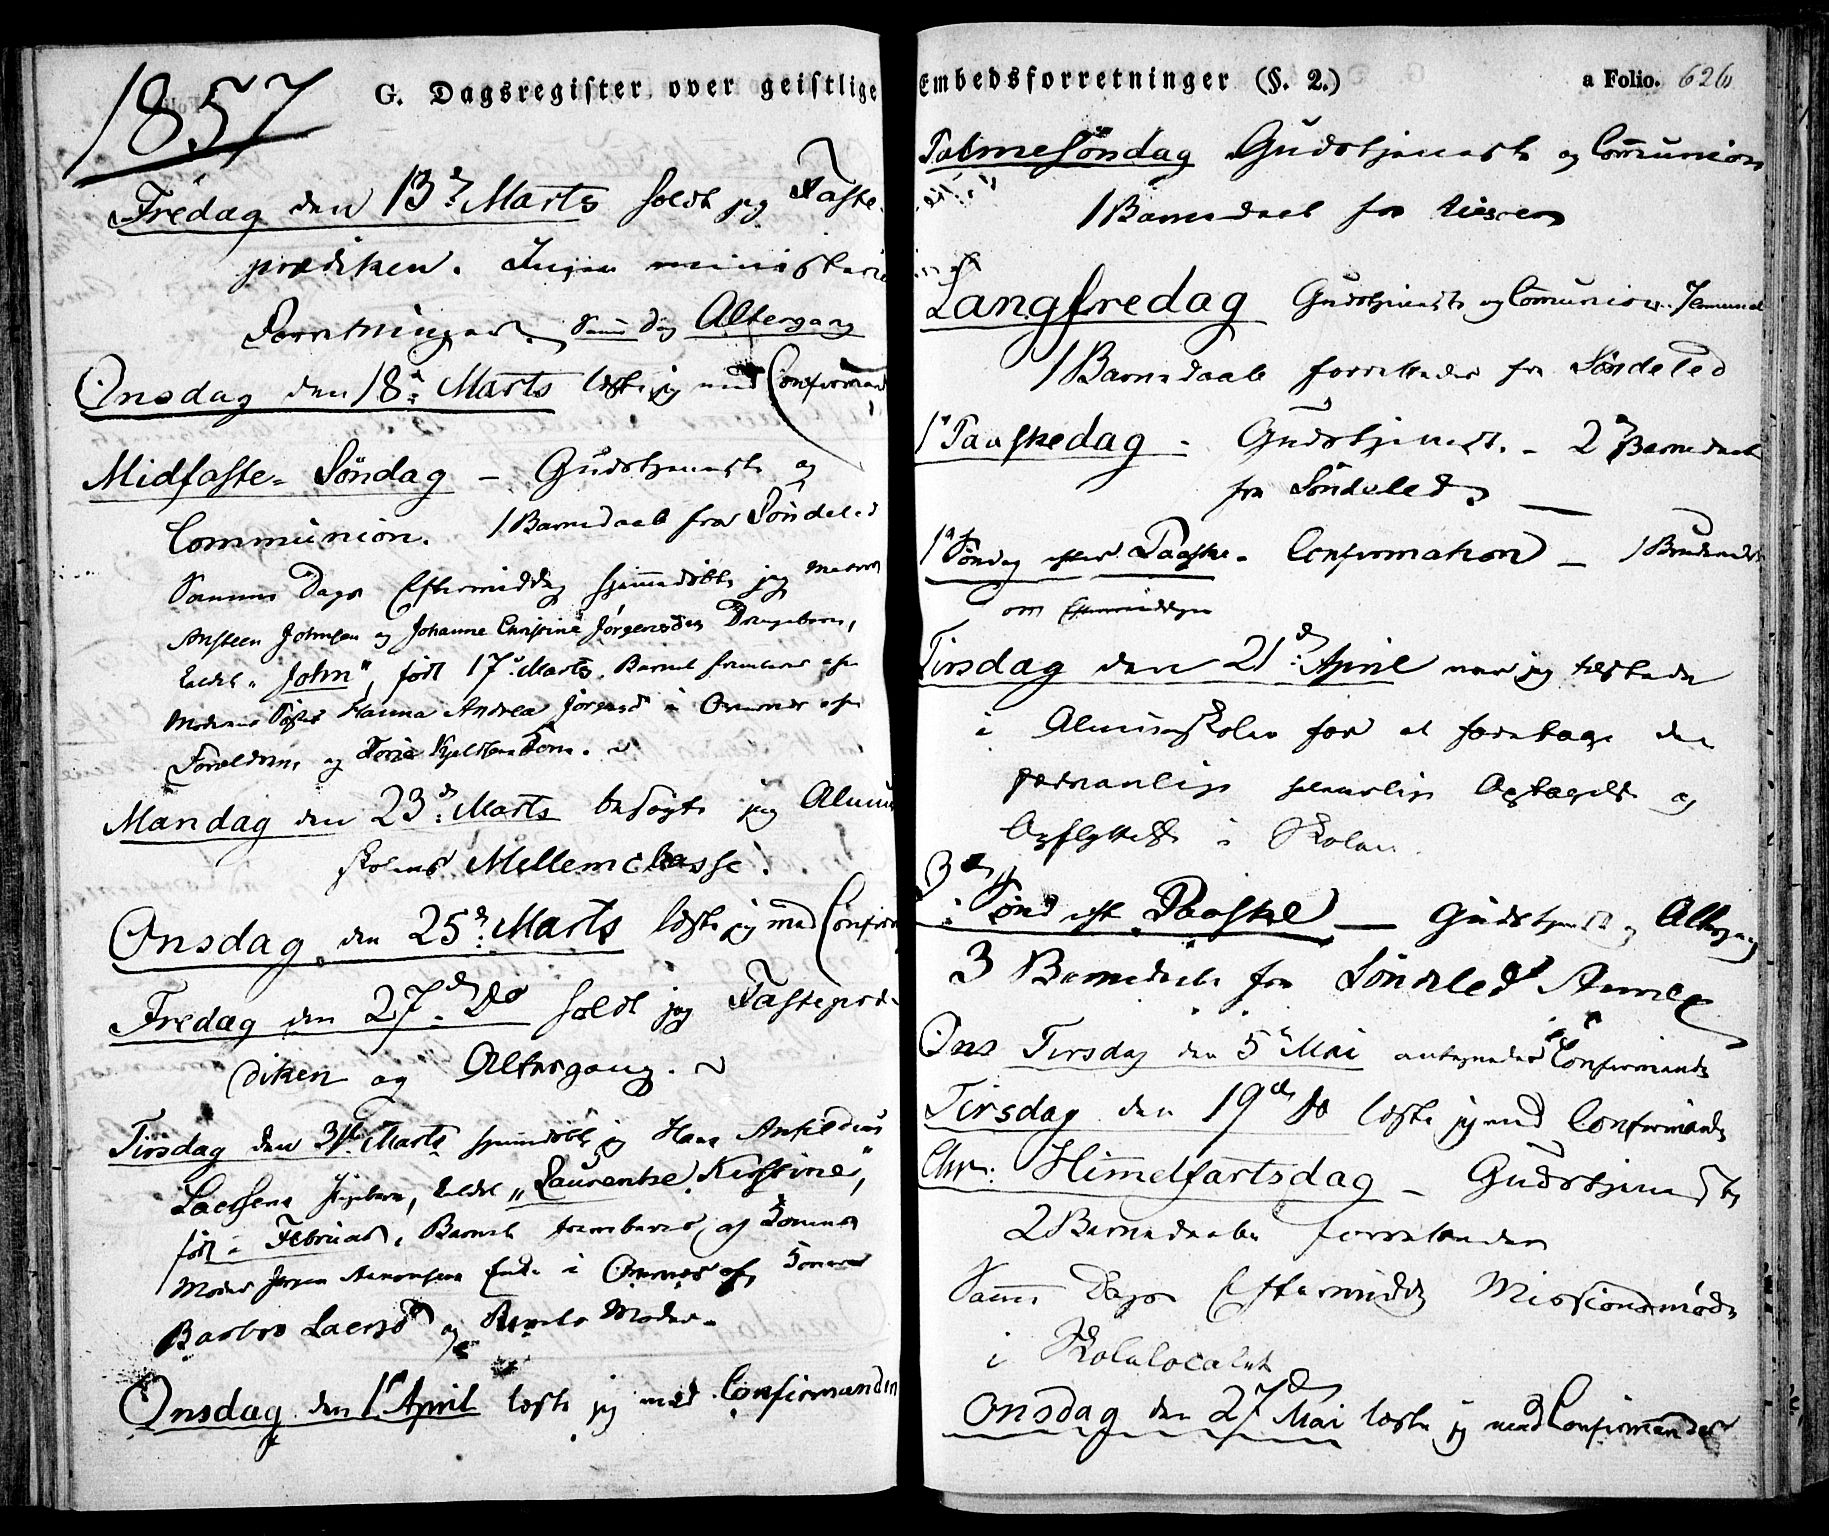 1857
G. Dagsregister over geistlige
Fredag den 13de Marts holdt jeg Faste-
prædiken. Ingen ministerielle
Forretninger. Samme Dag Altergang
Onsdag den 18de Marts læste jeg med Confirmand
Midfaste-Søndag – Gudstjeneste og
Communion. 1 Barnedaab fra Søndeled
Samme Dags Eftermiddag hjemmedøbte jeg
Ansteen Johnsen og Johanne Christine Jørgensdatter Drengebarn,
kaldet "John", født 17de Marts. Barnet frembæres af
Moderens Søster Hanna Andrea Jørgensd i
Forældrene og Terje Kjeldsen
Mandag den 23de Marts besøgte jeg Almue
skolens Mellemclasse.
Onsdag den 25de Marts læste jeg med Confirm
Fredag den 27de Do holdt jeg Fastepræ-
diken og Altergang.
Tirsdag den 31te Marts hjemmedøbte jeg Hans
Larsens Pigebarn, kaldet "Laurentse Kirstine",
født i Februar, Barnet frembæres af Konens
Moder Jørgen Aanonsens Enke i
Barbro Larsd og Moder.
Onsdag den 1ste April læste jeg med Confirmanden
Embedsforretninger (§. 2.)
a Folio. 626
Palmesøndag Gudstjeneste og Communion
1 Barnedaab fra
Langfredag Gudstjeneste og Communion
1 Barnedaab forrettedes fra Søndeled
1ste Paaskedag – Gudstjeneste. – 2de Barnedaab
fra Søndeled
1ste Søndag efter Paaske – Confirmation – 1 Brudevielse
om Eftermiddagen
Tirsdag den 21de April var jeg tilstede
i Almueskolen for at foretage den
sædvanlige halvaarlige Optagelse og
Opflyttelse i Skolen.
3die Sønd eft Paaske – Gudstjeneste og Altergang
3 Barnedaab fra Søndeled
Ons Tirsdag den 5te Mai antegnedes Confirmander
Tirsdag den 19de Do læste jeg med Confirmander
Chr: Himmelfartsdag – Gudstjeneste
2 Barnedaabe forrettedes
Samme Dags Eftermiddag Missionsmøde
i Skolelocalet
Onsdag den 27de Mai læste jeg med Confirmander